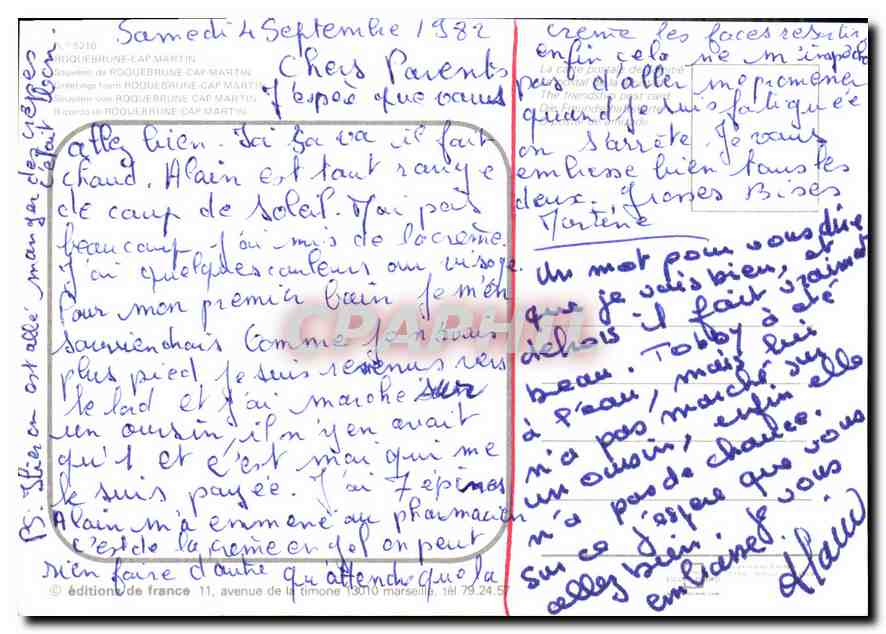 Samedi 4 Septembre 1982
N° 5210
ROQUEBRUNE-CAP MARTIN
Souvenir de ROQUEBRUNE-CAP MARTIN
Greetings from ROQUEBRUNE-CAP MARTIN
Souvenir von ROQUEBRUNE-CAP MARTIN
Ricordo di ROQUEBRUNE-CAP MARTIN
Chers Parents
J'espèe que vous
allez bien. Moi ça va il fait
chaud. Alain est tout rouge
de coup de soleil. Moi pas
beaucoup j'ai mis de la crème.
J'ai quelques couleurs au visage.
Pour mon premier bain je m'en
souviendrais Comme je n'avais
plus pied je suis revenus vers
le bord et j'ai marché sur
un oursin, il n'y en avait
qu'1 et c'est moi qui me
le suis payée. J'ai 7 épines
Alain m'a emmené au pharmacien
c'est de la crème en gel on peut
rien faire d'autre qu'attendre que la
crème les faces resortir,
enfin cela ne m'empèche
pas d'aller me promener
quand je suis fatiguée
on s'arrète. Je vous
embrasse bien tous les
deux. Grosses Bises
Un mot pour vous dire
que je vais bien, et
dehors il fait vraiment
beau. Tobby à été
à l'eau, mais lui
n'a pas marché sur
un oursin, enfin elle
n'a pas de chance.
Sur ce j'espère que vous
allez bien. Je vous
embrasse.
Alain
PS. Hier on est allé manger des crêpes
c'était bon.
© éditions de france 11, avenue de la timone 13010 marseille, tél 79.24.57
CPAPHIL